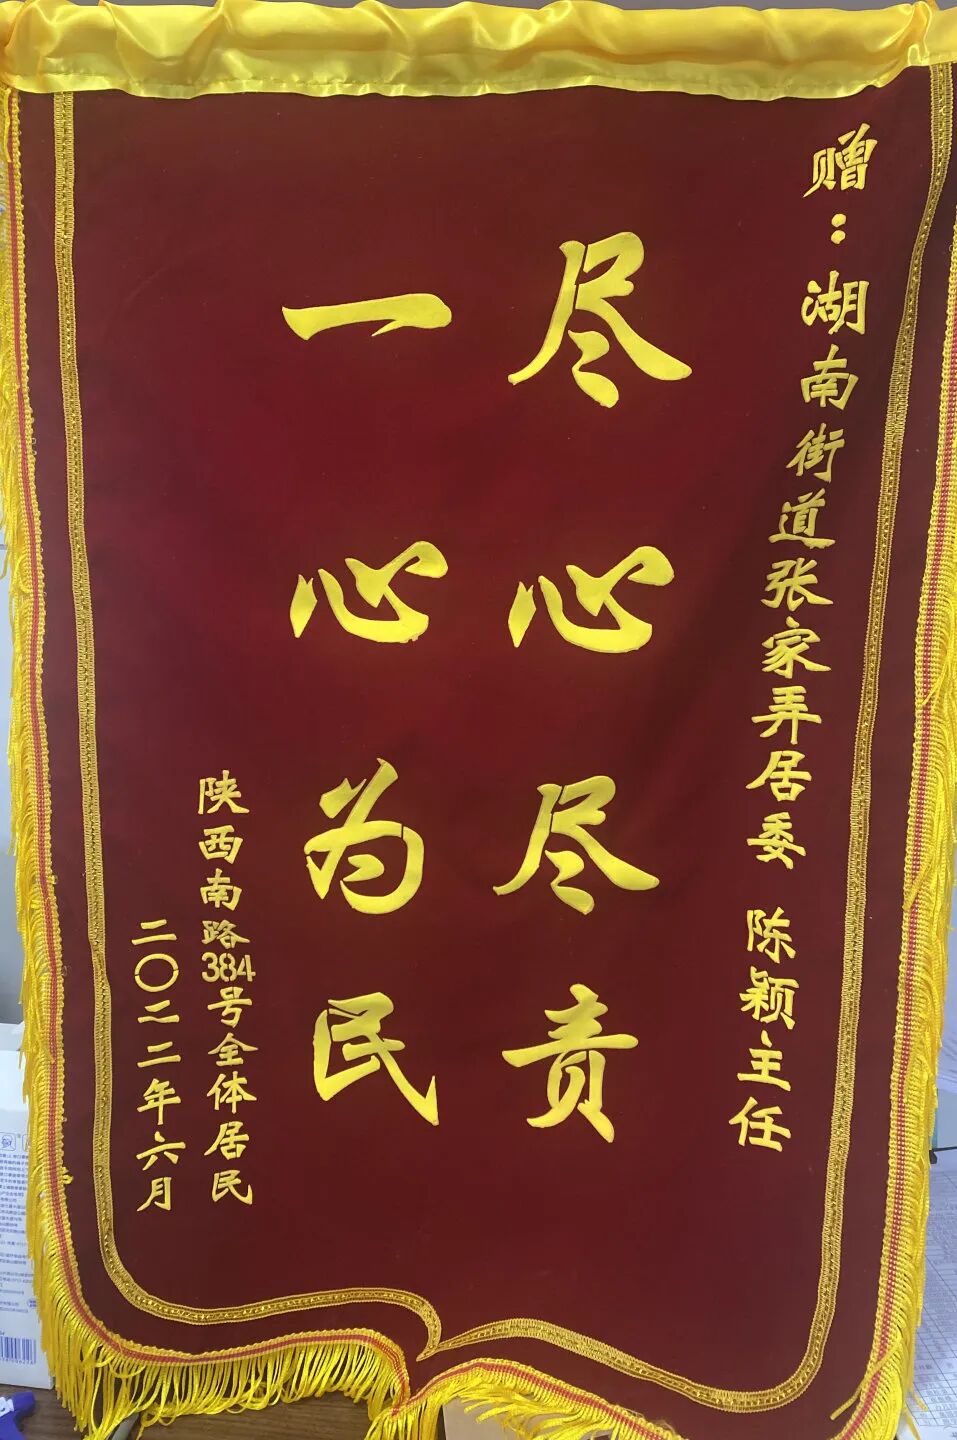 赠：湖南街道张家弄居委 陈颖主任
尽心尽责
一心为民
陕西南路384号全体居民
二〇二二年六月